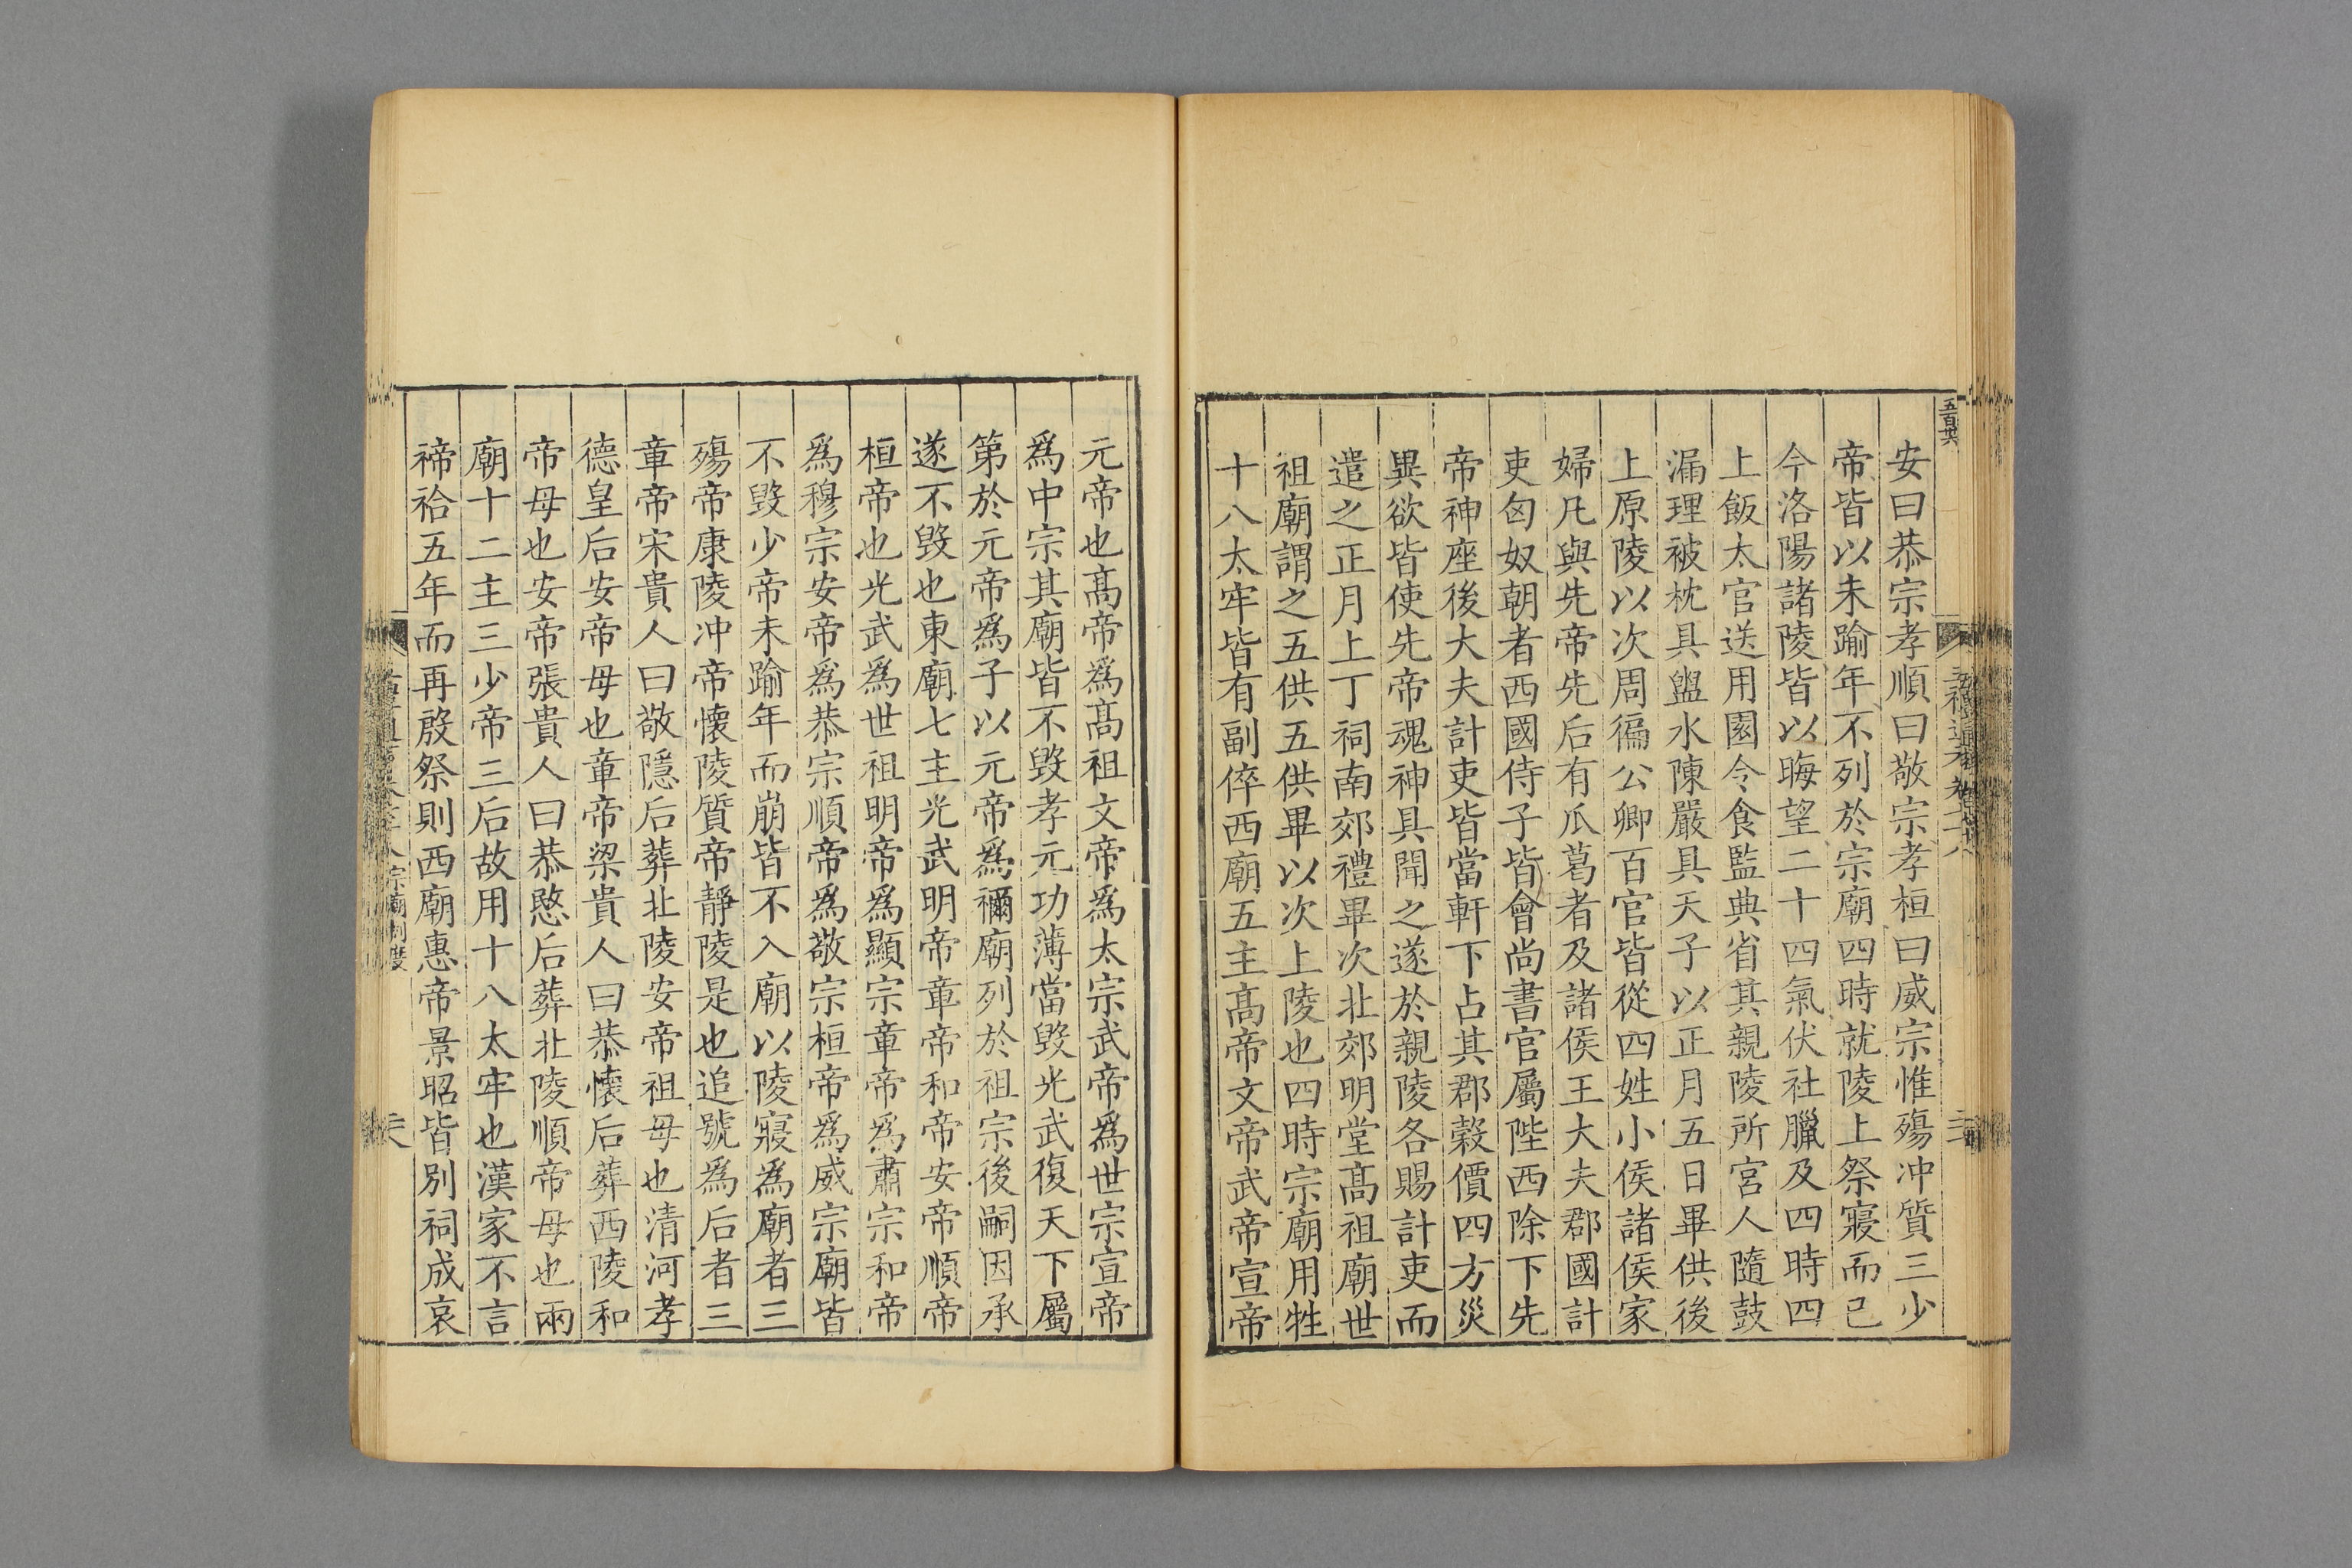 五百廿六
安曰恭宗孝順曰敬宗孝桓曰威宗惟殤冲質三少
帝皆以未踰年不列於宗廟四時就陵上祭寢而已
今洛陽諸陵皆以晦望二十四氣伏社臘及四時四
上飯太官送用園令食監典省其親陵所宮人隨鼓
漏理被枕具盥水陳嚴具天子以正月五日畢供後
上原陵以次周徧公卿百官皆從四姓小侯諸侯家
婦凡與先帝先后有瓜葛者及諸侯王大夫郡國計
吏匈奴朝者西國侍子皆會尚書官屬陛西除下先
帝神座後大夫計吏皆當軒下占其郡穀價四方災
異欲皆使先帝魂神具聞之遂於親陵各賜計吏而
遣之正月上丁祠南郊禮畢次北郊明堂髙祖廟世
祖廟謂之五供五供畢以次上陵也四時宗廟用牲
十八太牢皆有副倅西廟五主髙帝文帝武帝宣帝
元帝也髙帝爲髙祖文帝爲太宗武帝爲世宗宣帝
爲中宗其廟皆不毀孝元功薄當毀光武復天下屬
第於元帝爲子以元帝爲禰廟列於祖宗後嗣因承
遂不毀也東廟七主光武明帝章帝和帝安帝順帝
桓帝也光武爲世祖明帝爲顯宗章帝爲肅宗和帝
爲穆宗安帝爲恭宗順帝爲敬宗桓帝爲威宗廟皆
不毀少帝未踰年而崩皆不入廟以陵寢爲廟者三
殤帝康陵冲帝懷陵質帝靜陵是也追號爲后者三
章帝宋貴人曰敬隱后葬北陵安帝祖母也清河孝
德皇后安帝母也章帝梁貴人曰恭懷后葬西陵和
帝母也安帝張貴人曰恭愍后葬北陵順帝母也兩
廟十二主三少帝三后故用十八太牢也漢家不言
禘祫五年而再殷祭則西廟惠帝景昭皆別祠成哀
宗廟制度